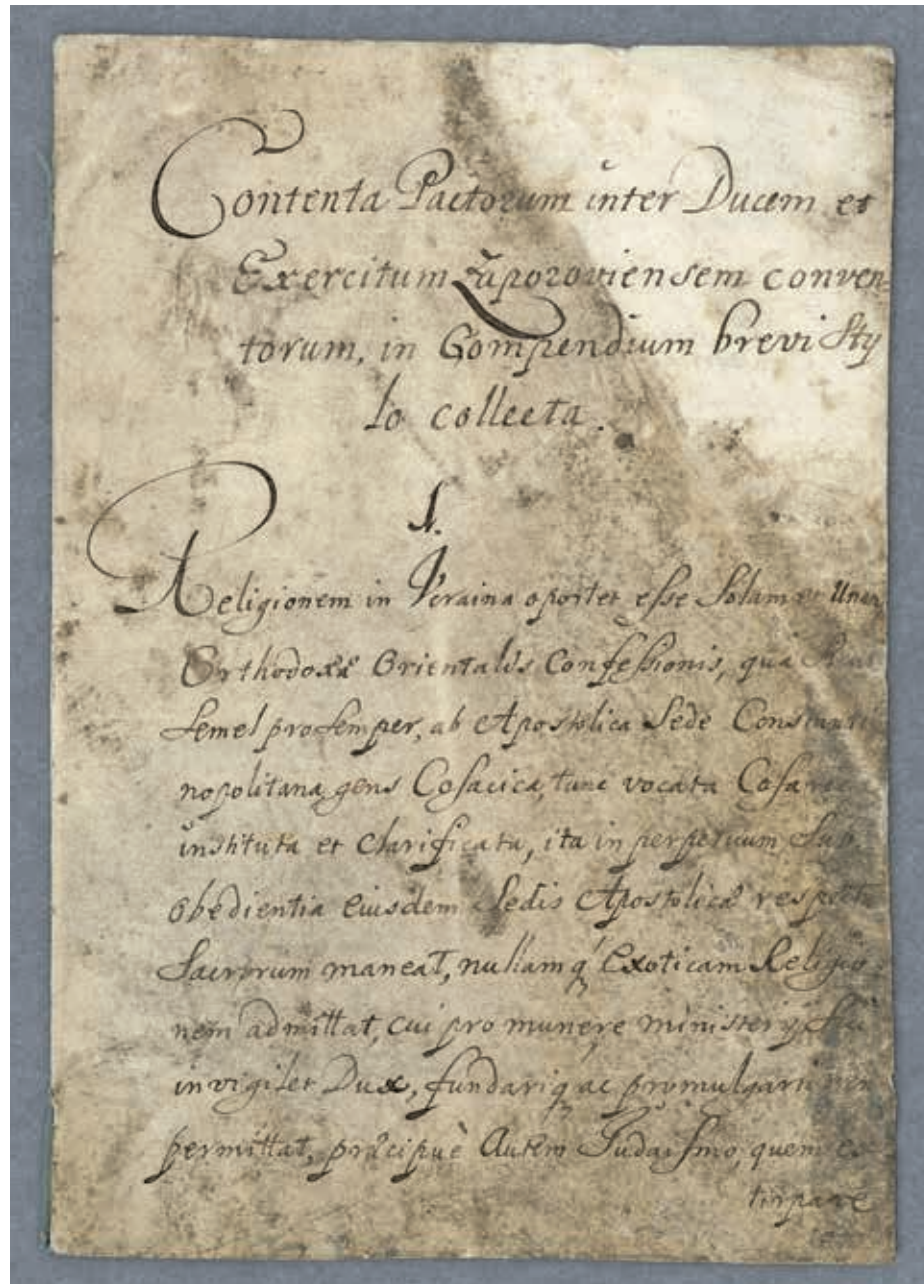 Contenta Pactorum inter Ducem et
Exercitum Zaporoviensem conven
torum, in Compendium brevi Sty
lo collecta.
1.
Religionem in Vcraina oportet esse Solam et Unam
Orthodoxæ Orientalis Confessionis, qua
semel pro semper, ab Apostolica Sede Constanti
nopolitana, gens Cosacica, tunc vocata
instituta et clarificata, ita in perpetuum sub
obedientia eiusdem Sedis Apostolicæ respectu
Sacrorum maneat, nullamq' Exoticam Religio
nem admittat, cui pro munere ministerij sui
invigilet Dux, fundariq' ac promulgari non
permittat, præcipuè Autem Judaismo, quem ex
tirpare